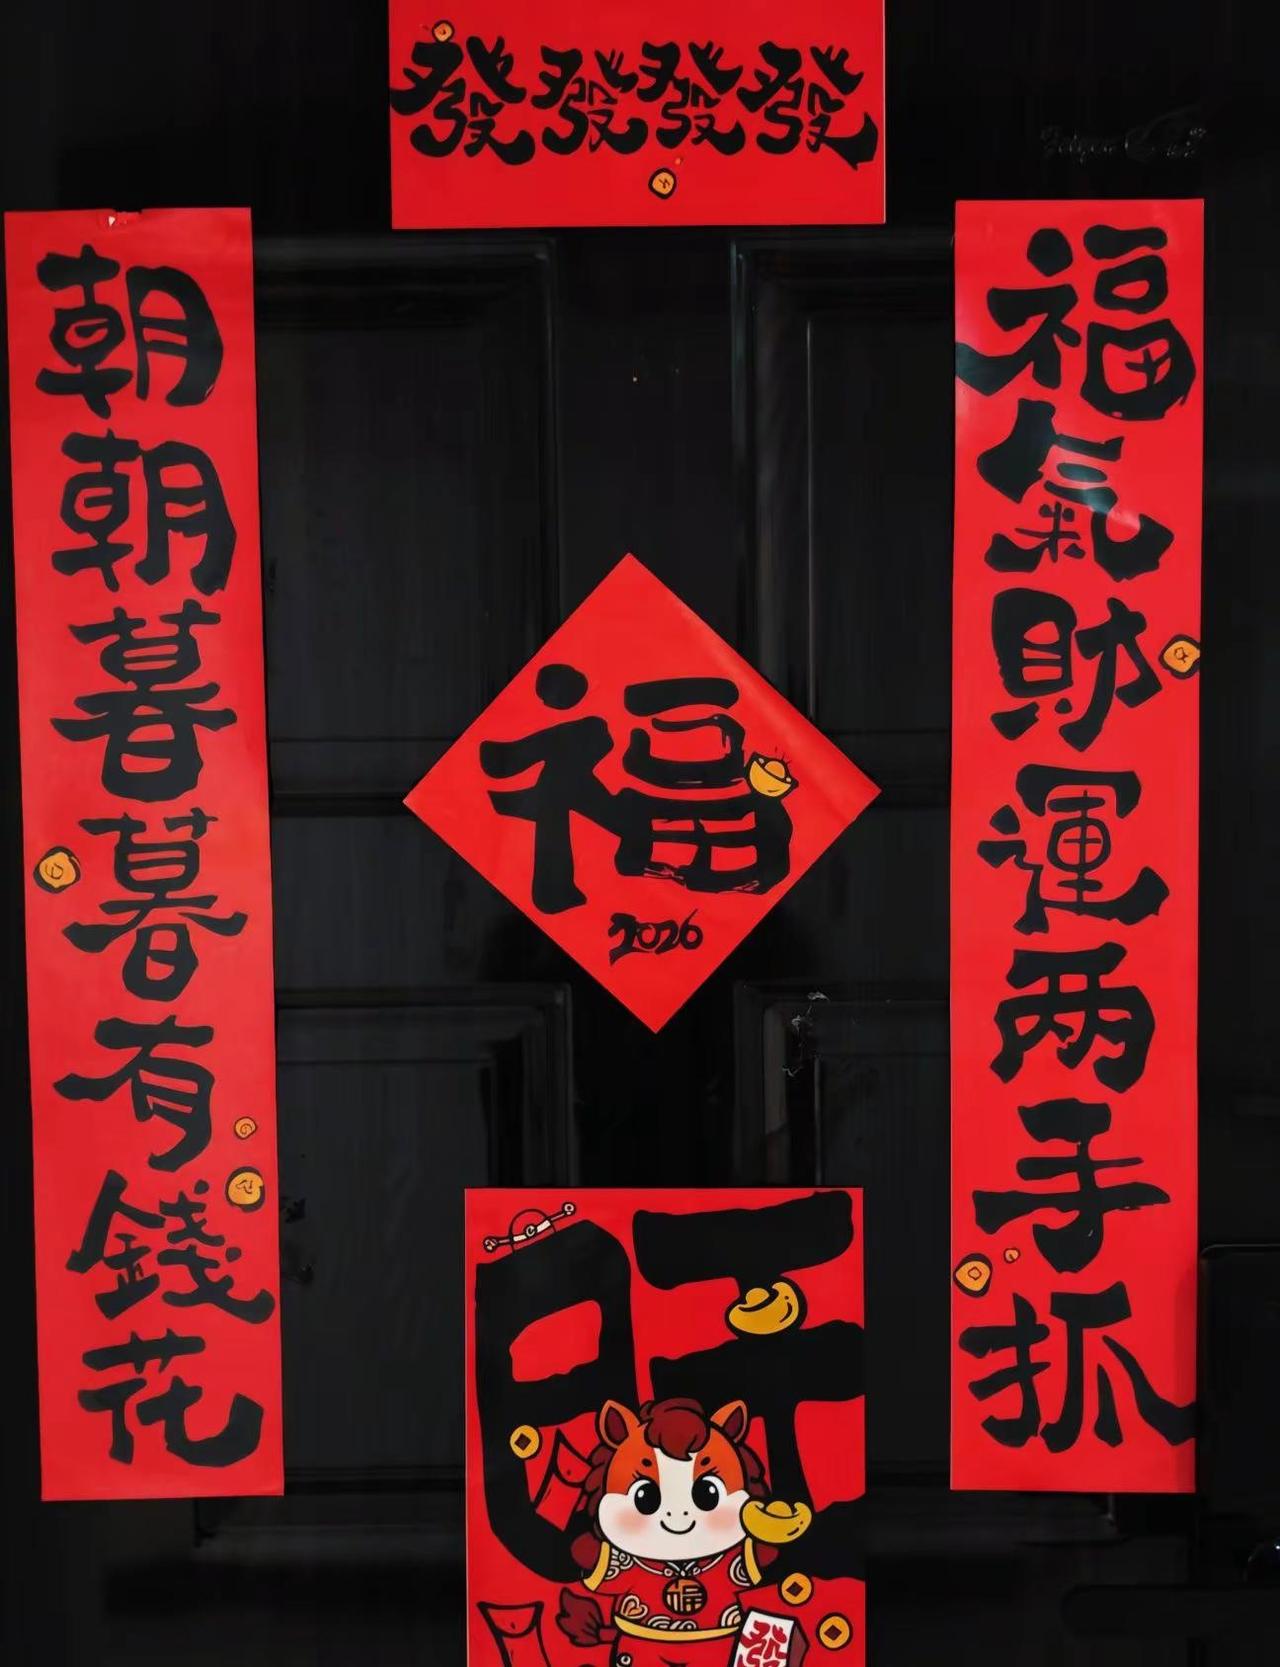 發發發發
福氣財運两手抓
朝朝暮暮有錢花
福
2026
旺
福
發